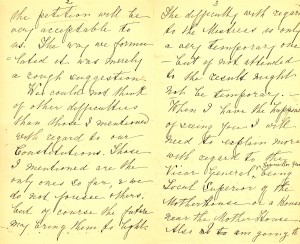 2
the petition will be
very acceptable to
us. The way we formu-
lated it was merely
a rough suggestion.
We could not think
of other difficulties
than those I mentioned
with regard to our
Constitutions. Those
I mentioned are the
only ones so far, & we
do not foresee others,
but of course the future
may bring them to light.
3
The difficulty with regard
to the Mistress is only
a very temporary one
- but if not attended
to the result might
not be temporary. -
When I have the happiness
of seeing you I will
need to explain more
with regard to the
Vicar General, being
Local Superior of the
Motherhouse or a House
near the Mother House.
Also as to am going to